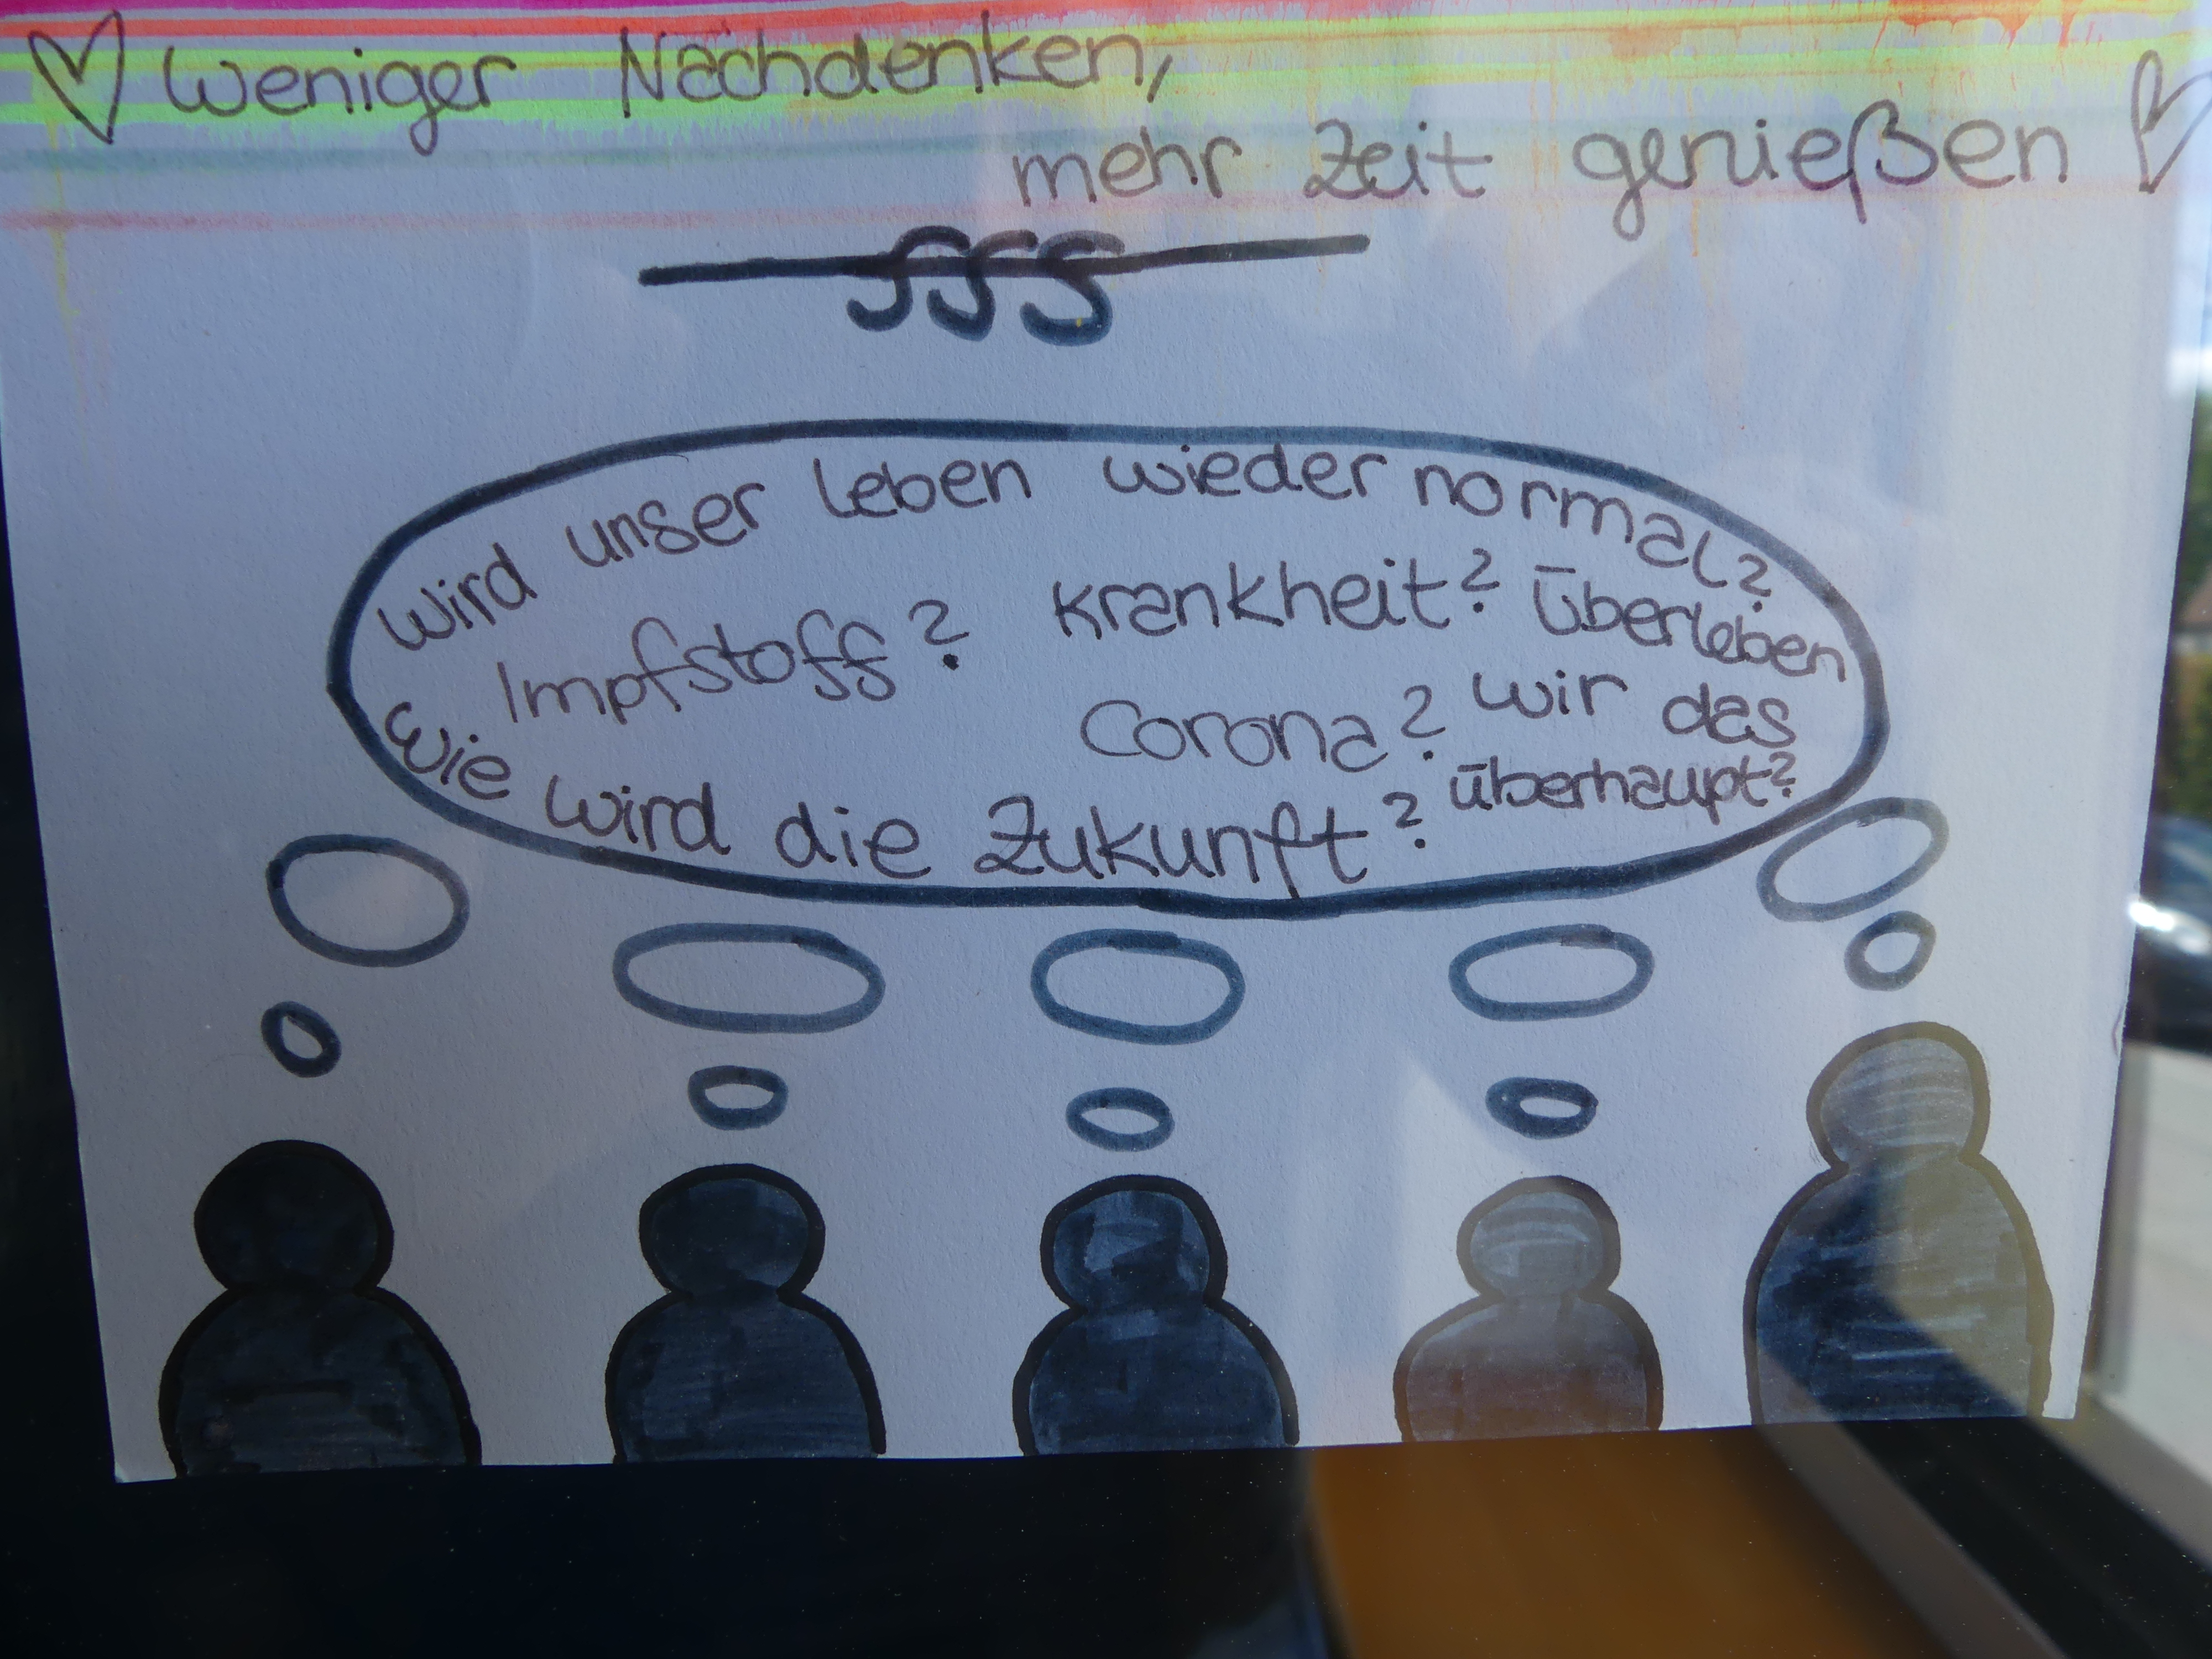 Weniger Nachdenken,
mehr Zeit genießen
Wird unser Leben wieder normal?
Impfstoff? Krankheit? Überleben
Corona? wir das
überhaupt?
Wie wird die Zukunft?